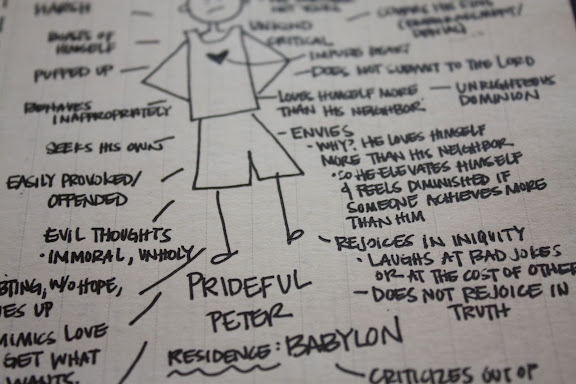 HARSH
BOASTS OF
HIMSELF
PUFFED UP
BEHAVES
INAPPROPRIATELY
SEEKS HIS OWN
EASILY PROVOKED/
OFFENDED
EVIL THOUGHTS
• IMMORAL, UNHOLY
BTING, W/O HOPE,
ES UP
MIMICS LOVE
GET WHAT
WANTS.
UNKIND
CRITICAL
IMPURE HEART
DOES NOT SUBMIT TO THE LORD
LOVES HIMSELF MORE
THAN HIS NEIGHBOR
UNRIGHTEOUS
DOMINION
- ENVIES
• WHY? HE LOVES HIMSELF
MORE THAN HIS NEIGHBOR
• SO HE ELEVATES HIMSELF
& FEELS DIMINISHED IF
SOMEONE ACHIEVES MORE
THAN HIM
REJOICES IN INIQUITY
• LAUGHS AT BAD JOKES
OR AT THE COST OF OTHE
- DOES NOT REJOICE IN
TRUTH
PRIDEFUL
PETER
RESIDENCE: BABYLON
CRITICIZES OUT OF